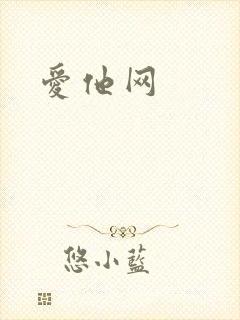 愛他网
悠小藍